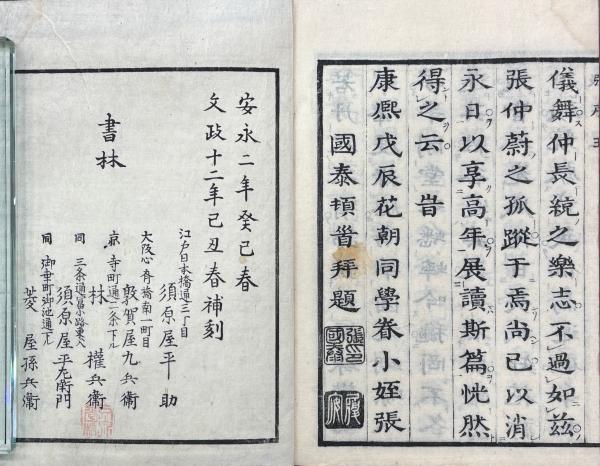 儀舞仲長統之樂志不過如茲
張仲蔚之孤蹤于焉尚已以消
永日以享高年展讀斯篇恍然
得之云 旹
康熙戊辰花朝同學眷小姪張
國泰頓首拜題
安永二年癸巳春
文政十二年己丑春補刻
書林
江戸日本橋通三丁目
須原屋平助
大坂心斎橋南一町目
敦賀屋九兵衛
京寺町通二条下ル
林權兵衛
同三条通冨小路東へ入
須原屋平左衛門
同御幸町御池通下ル
菱屋孫兵衛